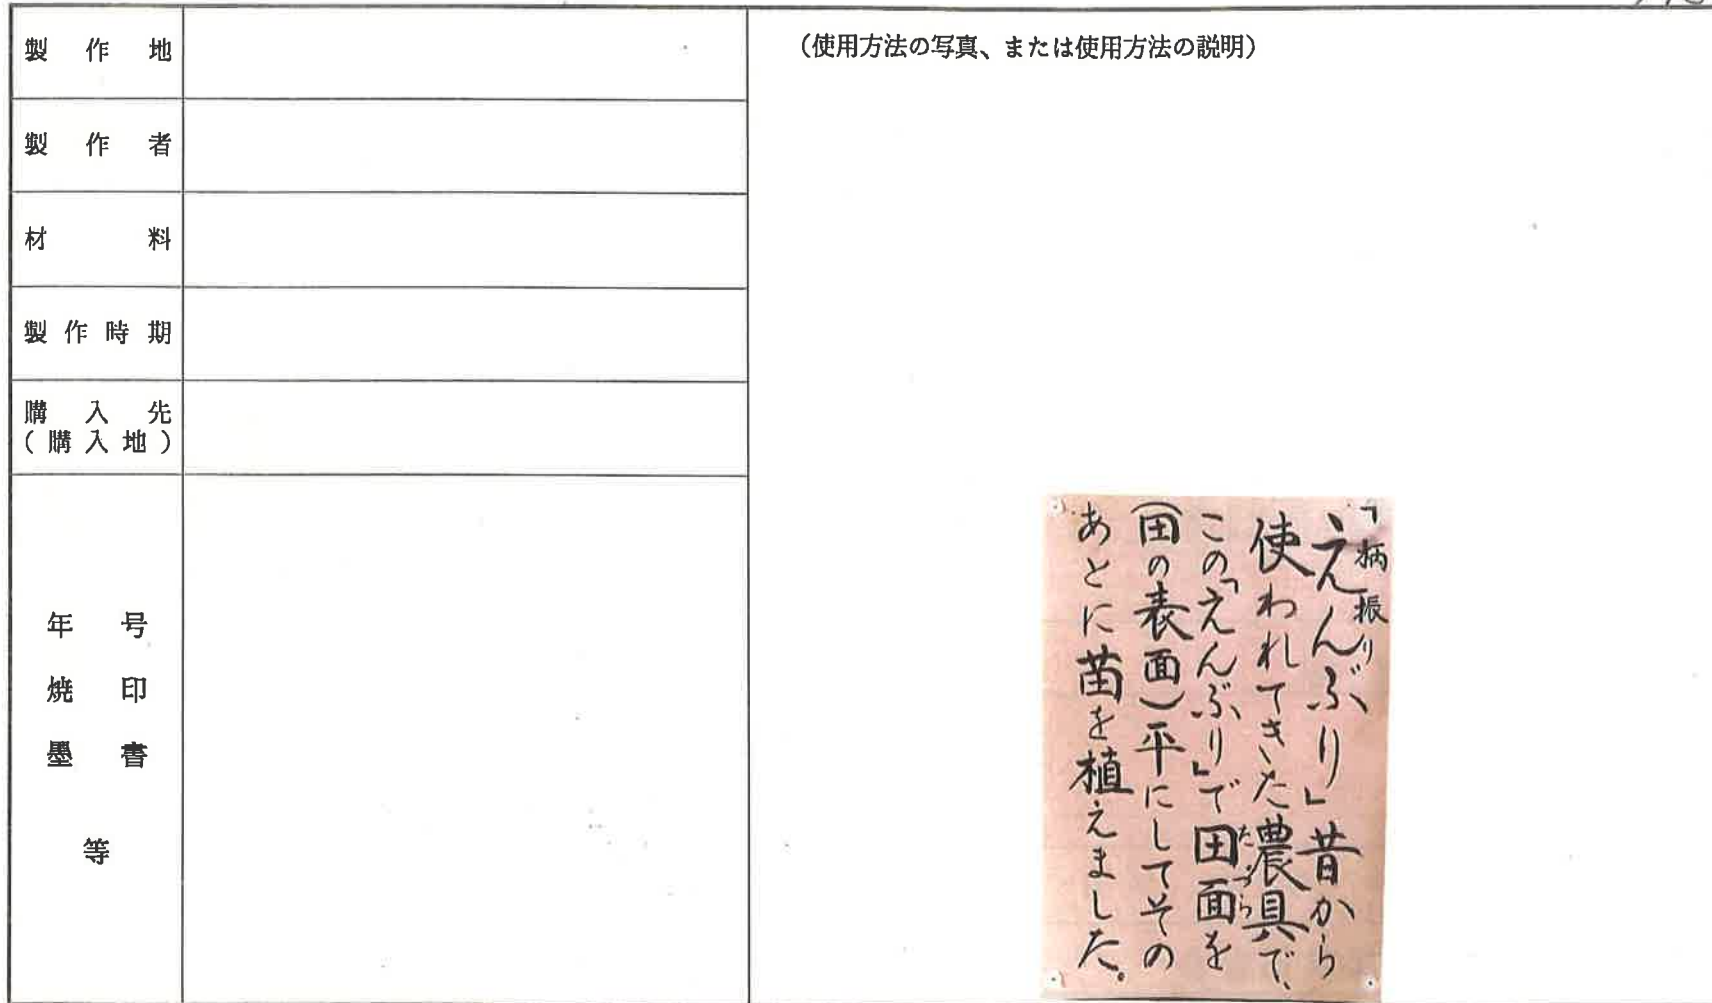 製作地
製作者
材料
製作時期
購入先
(購入地)
年号
焼印
墨書
等
(使用方法の写真、または使用方法の説明)
柄振り
「えんぶり」昔から
使われてきた農具で、
たづら
この「えんぶり」で田面を
(田の表面)平にしてその
あとに苗を植えました。